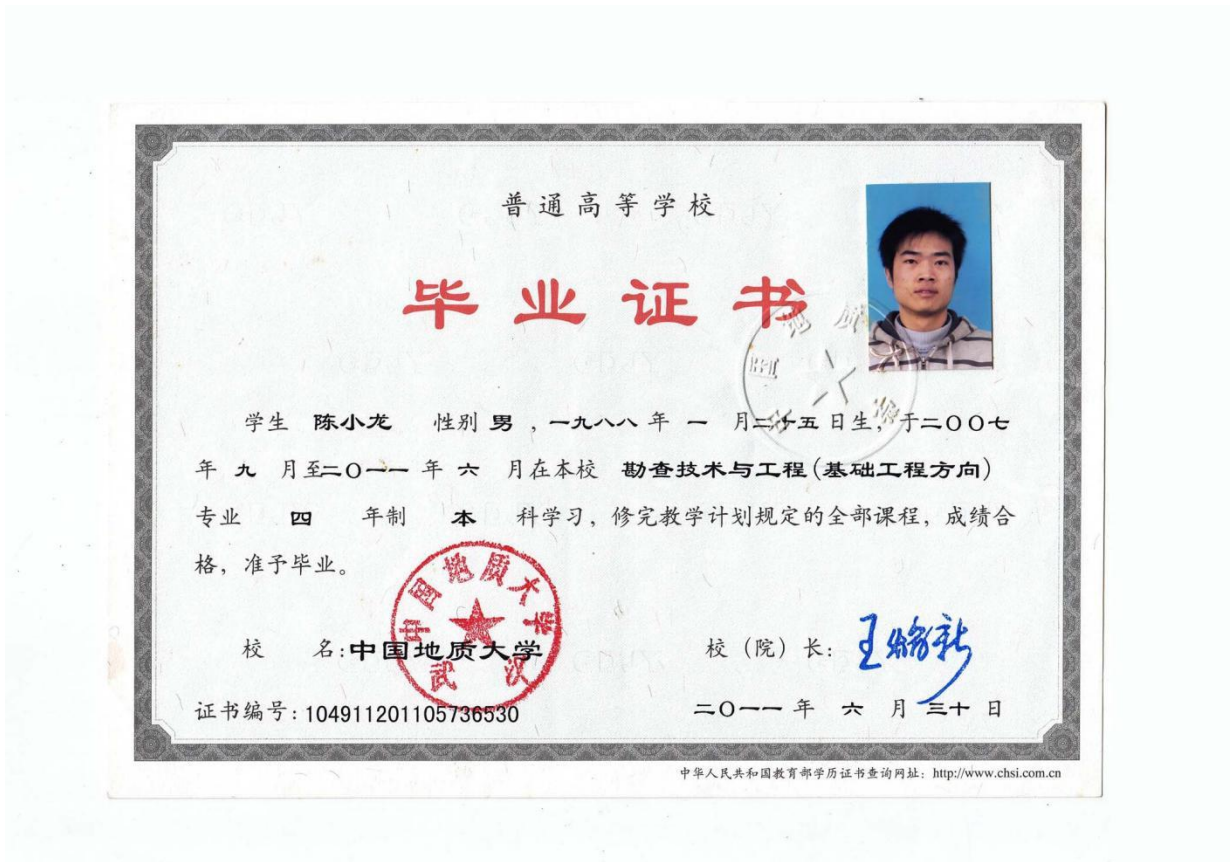 普通高等学校
毕业证书
学生 陈小龙 性别 男 ，一九八八 年 一 月二十五 日生，于二〇〇七
年 九 月至二〇一一 年 六 月在本校 勘查技术与工程(基础工程方向)
专业 四 年制 本 科学习，修完教学计划规定的全部课程，成绩合
格，准予毕业。
中国地质大学
武汉
校 名:中国地质大学 校（院）长:
证书编号:104911201105736530 二〇一一 年 六 月 三十 日
中华人民共和国教育部学历证书查询网址：http://www.chsi.com.cn